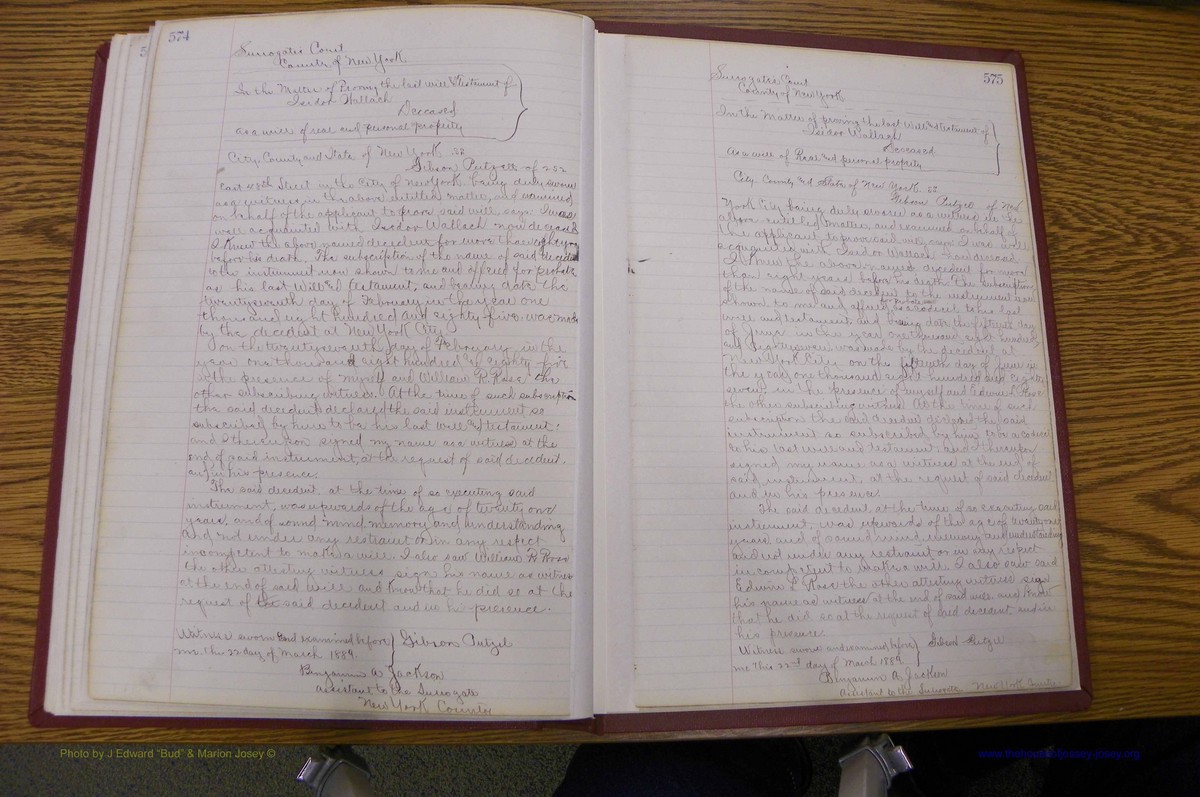 574
Surrogates Court
County of New York
In the Matter of Proving the last will & Testament of
Isidor Wallach
Deceased
as a will of real and personal property
City, County and State of New York. ss
Gibson Putzel of 252
East 48th Street in the City of New York being duly sworn
as a witness in the above entitled matter, and examined
on behalf of the applicant to prove said will, says I was
well acquainted with Isidor Wallach now deceased
I knew the above named decedent for more than eight years
before his death. The subscription of the name of said decedent
to the instrument now shown to me and offered for probate
as his last Will and Testament, and bearing date the
twentyseventh day of February in the year one
thousand eight hundred and eighty five was made
by the decedent at New York City
on the twentyseventh day of February in the
year one thousand eight hundred and eighty five
in the presence of myself and William R. Rose the
other subscribing witness. At the time of such subscription
the said decedent declared the said instrument so
subscribed by him to be his last will and testament;
and I thereupon signed my name as a witness at the
end of said instrument, at the request of said decedent.
and in his presence.
The said decedent, at the time of so executing said
instrument, was upwards of the age of twenty one
years, and of sound mind, memory, and understanding
and not under any restraint or in any respect
incompetent to make a will. I also saw William R. Rose
the other attesting witness sign his name as witness
at the end of said will and know that he did so at the
request of the said decedent and in h presence.
Witness sworn and examined before
me this 22 day of March 1889.
Gibson Putzel
Benjamin A. Jackson
assistant to the Surrogate
New York County
575
Surrogates Court
County of New York
In the Matter of proving the last Will & testament of
Isidor Wallach
Deceased
as a will of Real and personal property
City, County and State of New York. ss
Gibson Putzel of New
York City being duly sworn as a witness in the
above entitled matter, and examined on behalf of
the applicant to prove said will, says I was well
acquainted with Isidor Wallach now deceased
I knew the above named decedent for more
than eight years before his death the subscription
of the name of said decedent to the instrument now
shown to me and offered for probate as a codicil to his last
will and testament, and bearing date the fifteenth day
of June in the year one thousand eight hundred
and eighty seven was made by the decedent at
New York City on the fifteenth day of June in
the year one thousand eight hundred and eighty
seven in the presence of myself and Edwin L Rose
the other subscribing witness At the time of such
subscription the said decedent declared the said
instrument so subscribed by him to be a codicil
to his last will and testament, and I thereupon
signed my name as a witness at the end of
said instrument, at the request of said decedent
and in his presence.
The said decedent, at the time of so executing said
instrument, was upwards of the age of twenty one
years and of sound mind memory and understanding
and not under any restraint or in any respect
incompetent to make a will. I also saw said
Edwin L Rose the other attesting witness sign
his name as witness at the end of said will and know
that he did so at the request of said decedent and in
his presence.
Witness sworn and examined before
me this 22nd day of March 1889
Gibson Putzel
Benjamin A. Jackson
assistant to the Surrogate New York County
Photo by J Edward "Bud" & Marion Josey ©